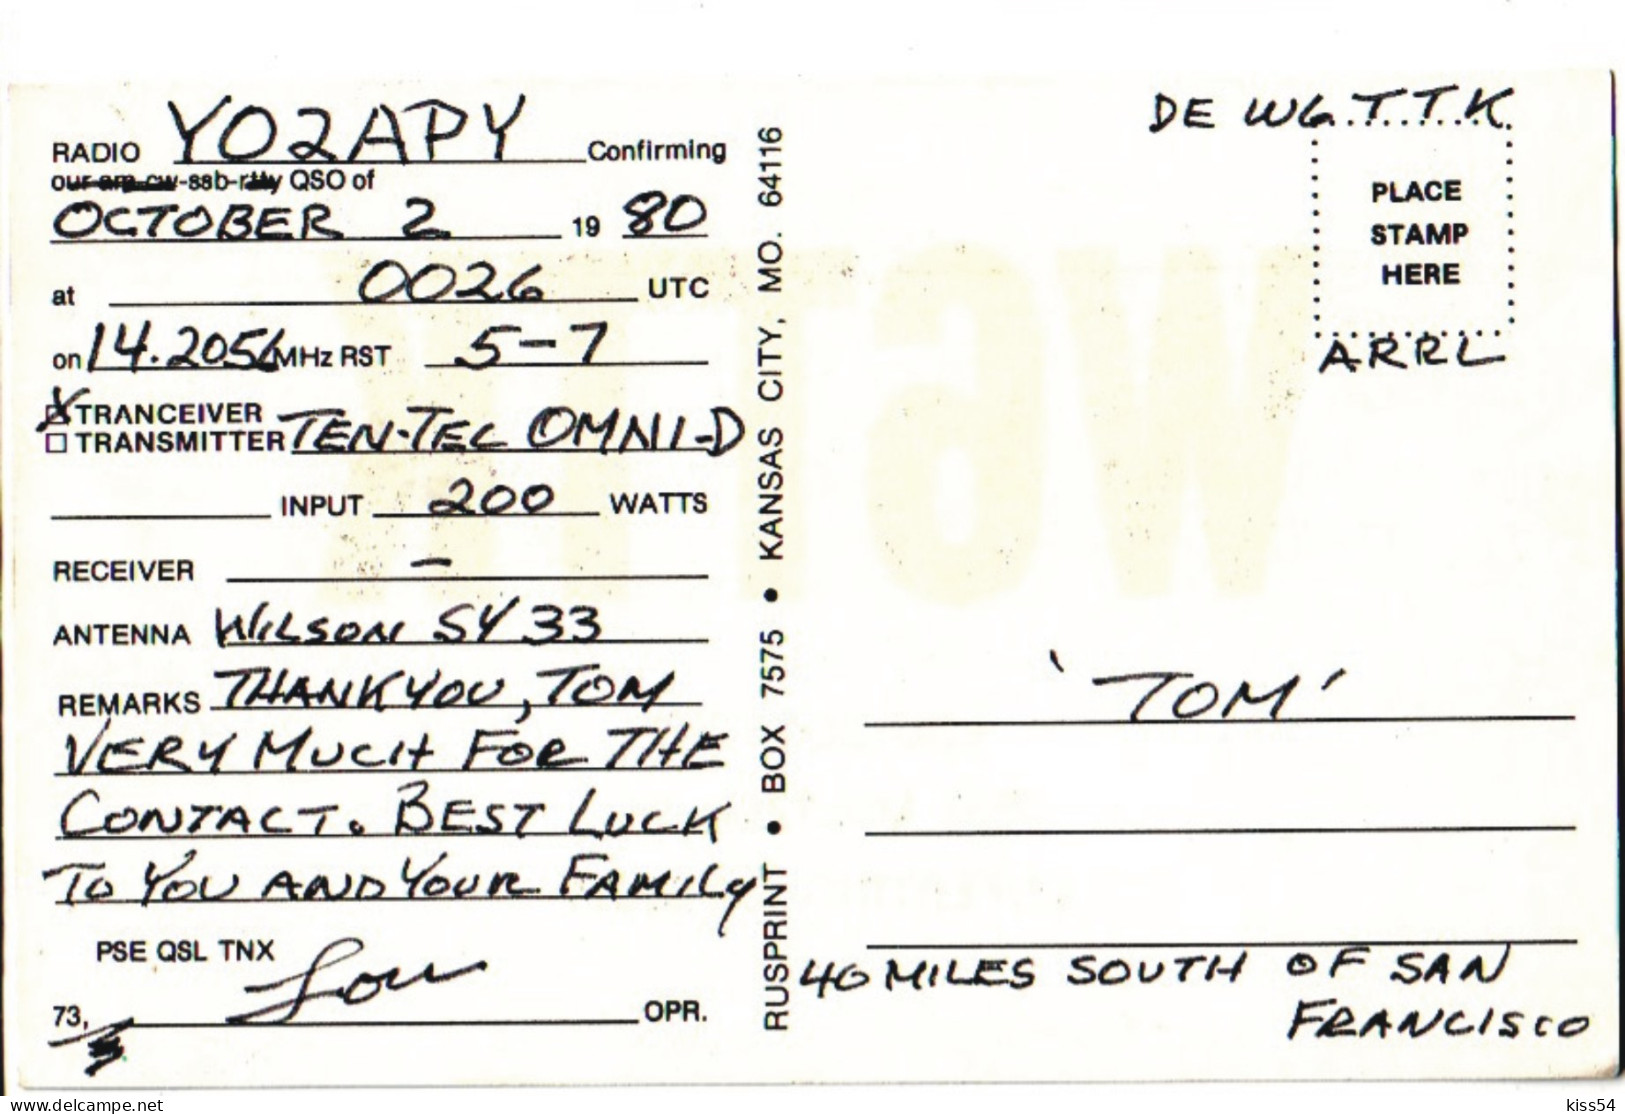 RADIO YO2APY Confirming
our am-cw-ssb-rtty QSO of
OCTOBER 2 19 80
at 0026 UTC
on 14.2056 MHz RST 5-7
X TRANCEIVER
☐ TRANSMITTER TEN-TEC OMNI-D
INPUT 200 WATTS
RECEIVER —
ANTENNA WILSON SY 33
REMARKS THANK YOU, TOM
VERY MUCH FOR THE
CONTACT. BEST LUCK
TO YOU AND YOUR FAMILY
PSE QSL TNX
73, Lou OPR.
RUSPRINT • BOX 7575 • KANSAS CITY, MO. 64116
DE W6TTK
PLACE
STAMP
HERE
ARRL
W6TTK
'TOM'
40 MILES SOUTH OF SAN
FRANCISCO
delcampe.net
kiss54